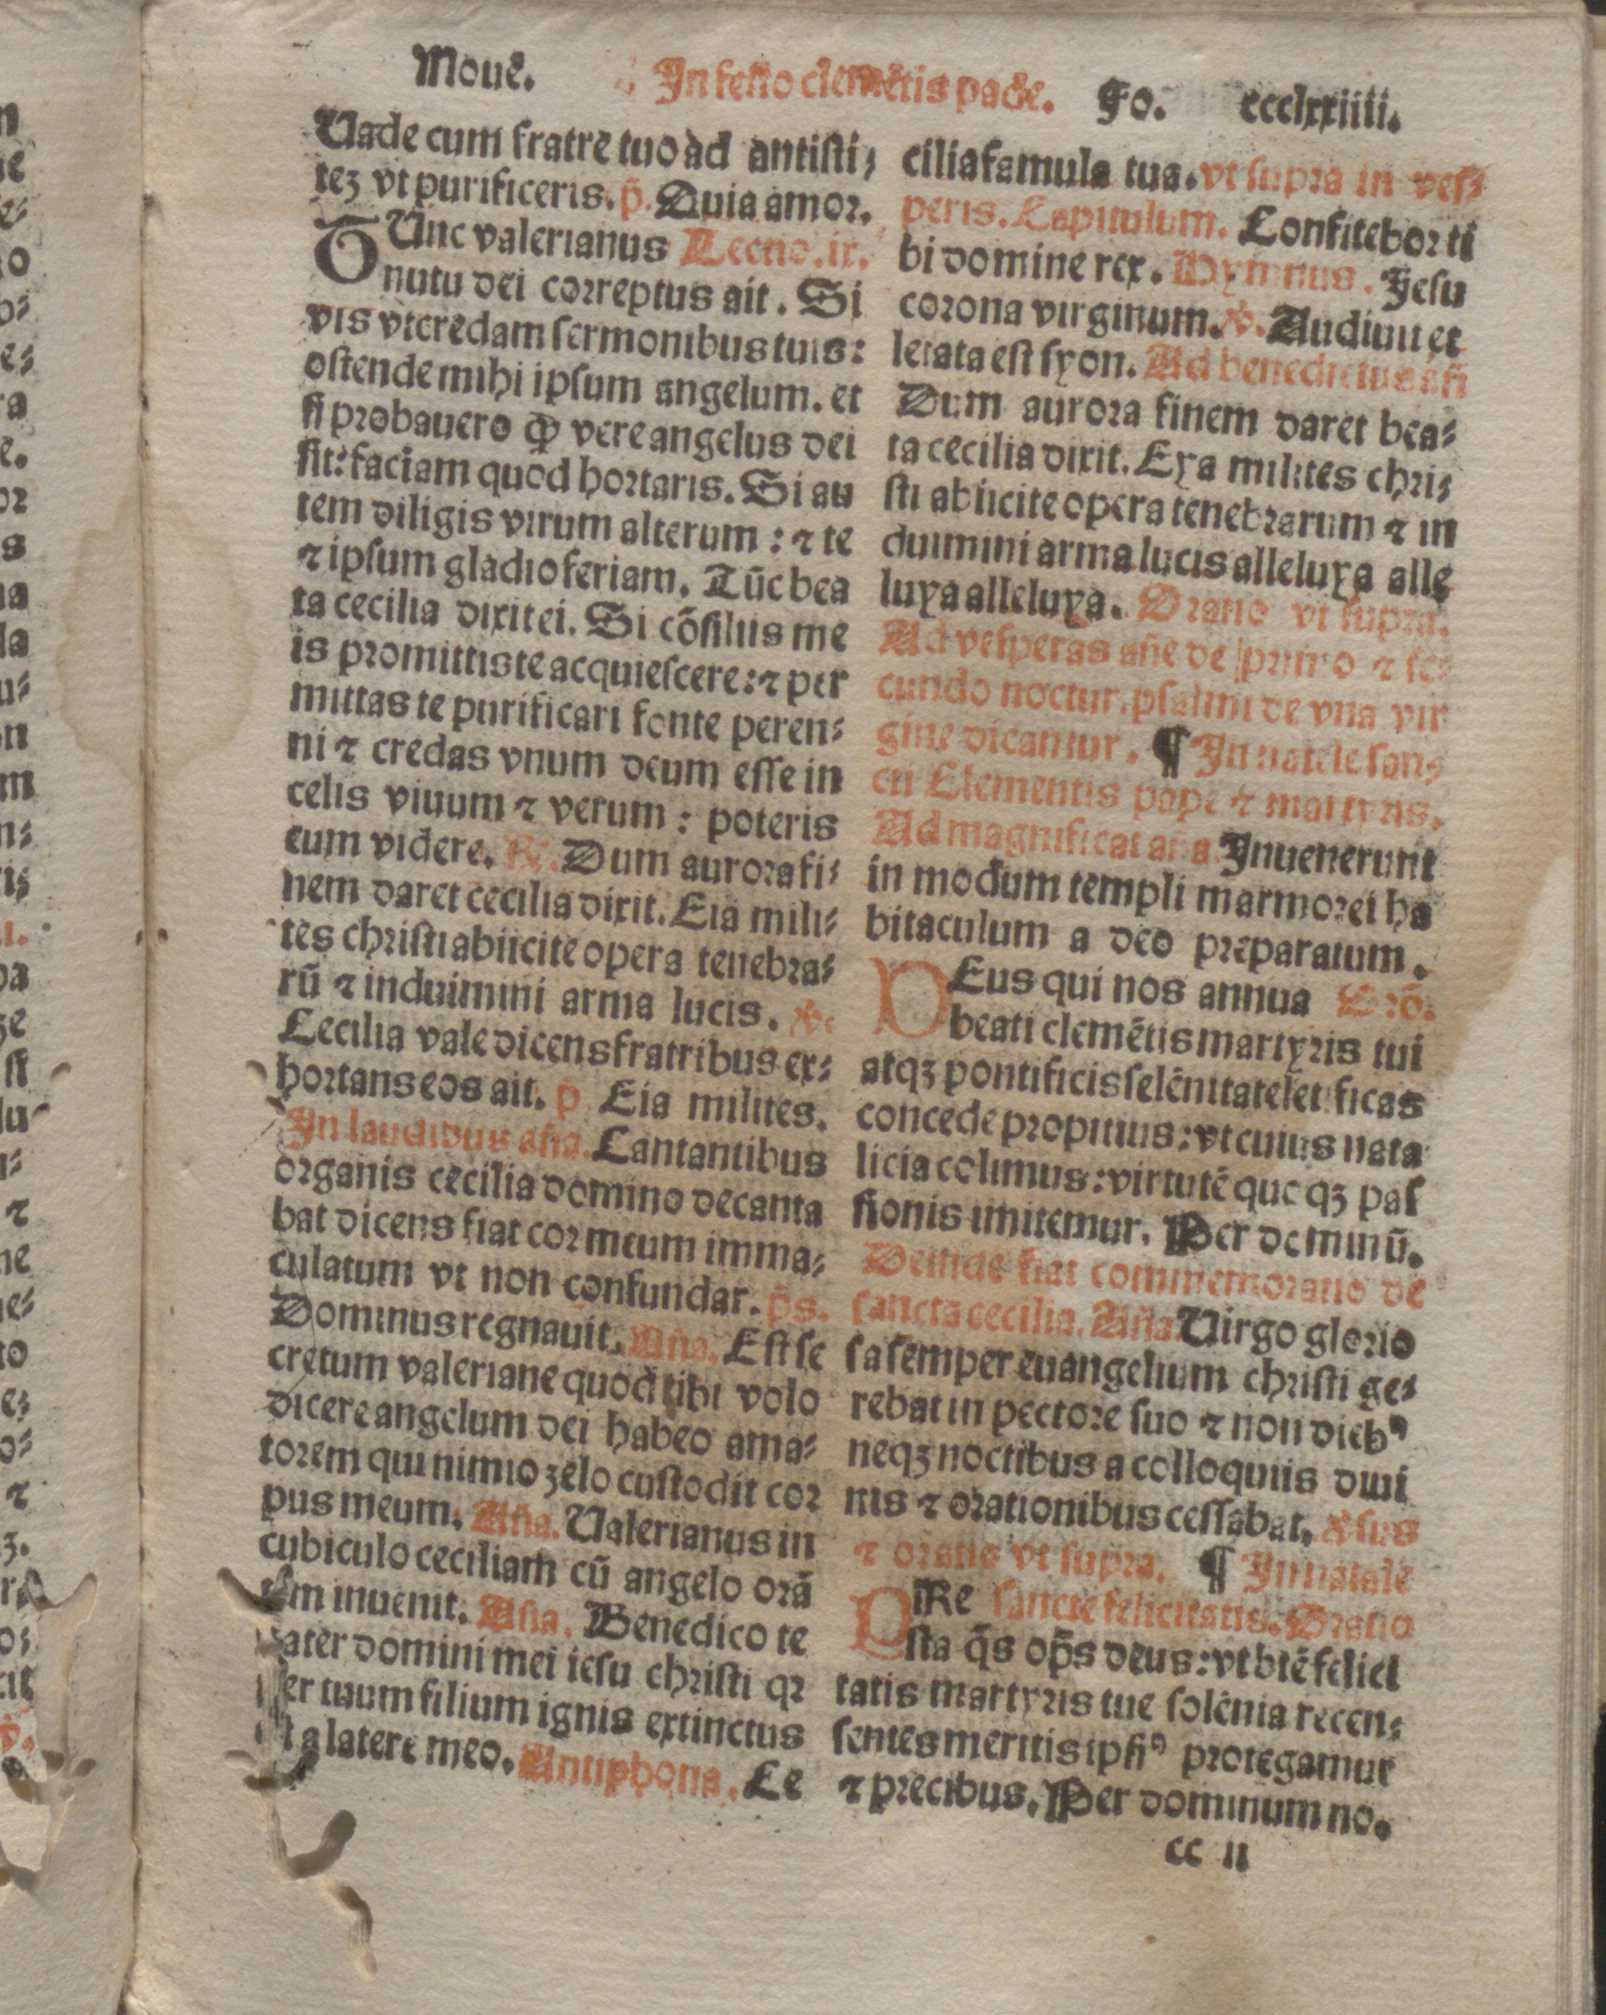 Nouẽ. In festo clemẽtis pape. Fo. ccclxxiiii.
Uade cum fratrẽ tuo ad antisti⸗
teʒ vt purificeris. p̃. Quia amor.
TUnc valerianus Lectio. ix.
nutu dei correptus ait. Si
vis vt credam sermonibus tuis:
ostende mihi ipsum angelum. et
si probauero ꝙ vere angelus dei
sit: faciam quod hortaris. Si au
tem diligis virum alterum: ⁊ te
⁊ ipsum gladio feriam. Tũc bea
ta cecilia dixit ei. Si cõsiliis me
is promittis te acquiescere: ⁊ per
mittas te purificari fonte peren⸗
ni ⁊ credas vnum deum esse in
celis viuum ⁊ verum: poteris
eum videre. ℟. Dum aurora fi⸗
nem daret cecilia dixit. Eia mili⸗
tes christi abiicite opera tenebra⸗
rũ ⁊ induimini arma lucis. ℣.
Cecilia vale dicens fratribus ex⸗
hortans eos ait. p. Eia milites.
In laudibus aña. Cantantibus
organis cecilia domino decanta
bat dicens fiat cor meum imma⸗
culatum vt non confundar. p̃s.
Dominus regnauit. Aña. Est se
cretum valeriane quod tibi volo
dicere angelum dei habeo ama⸗
torem qui nimio zelo custodit cor
pus meum. Aña. Ualerianus in
cubiculo ceciliam cũ angelo orã
tem inuenit. Aña. Benedico te
pater domini mei iesu christi qꝛ
per tuum filium ignis extinctus
a latere meo. Antiphona. Ce
cilia famula tua. vt supra in ves⸗
peris. Capitulum. Confitebor ti
bi domine rex. Hymnus. Jesu
corona virginum. ℣. Audiuit et
letata est syon. Ad benedictus añ
Dum aurora finem daret bea⸗
ta cecilia dixit. Eya milites chri⸗
sti abiicite opera tenebrarum ⁊ in
duimini arma lucis alleluya alle
luya alleluya. Oratio vt supra.
Ad vesperas añe de primo ⁊ se⸗
cundo noctur. psalmi de vna vir
gine dicantur. ¶ In natale san⸗
cti Clementis pape ⁊ martyris.
Ad magnificat aña Inuenerunt
in modum templi marmorei ha
bitaculum a deo preparatum.
DEus qui nos annua Orõ.
beati clemẽtis martyris tui
atqʒ pontificis solẽnitate letificas
concede propitius: vt cuius nata
licia colimus: virtutẽ quoqʒ pas
sionis imitemur. Per dominũ.
Deinde fiat commemoratio de
sancta cecilia. Aña Uirgo glorio
sa semper euangelium christi ge⸗
rebat in pectore suo ⁊ non diebꝰ
neqʒ noctibus a colloquiis diui
nis ⁊ orationibus cessabat. ℣sus
⁊ oratio vt supra. ¶ In natale
PRe sancte felicitatis. Oratio
sta q̃s op̃s deus: vt btẽ felici
tatis martyris tue solẽnia recen⸗
sentes meritis ipsiꝰ protegamur
⁊ precibus. Per dominum no.
cc ii